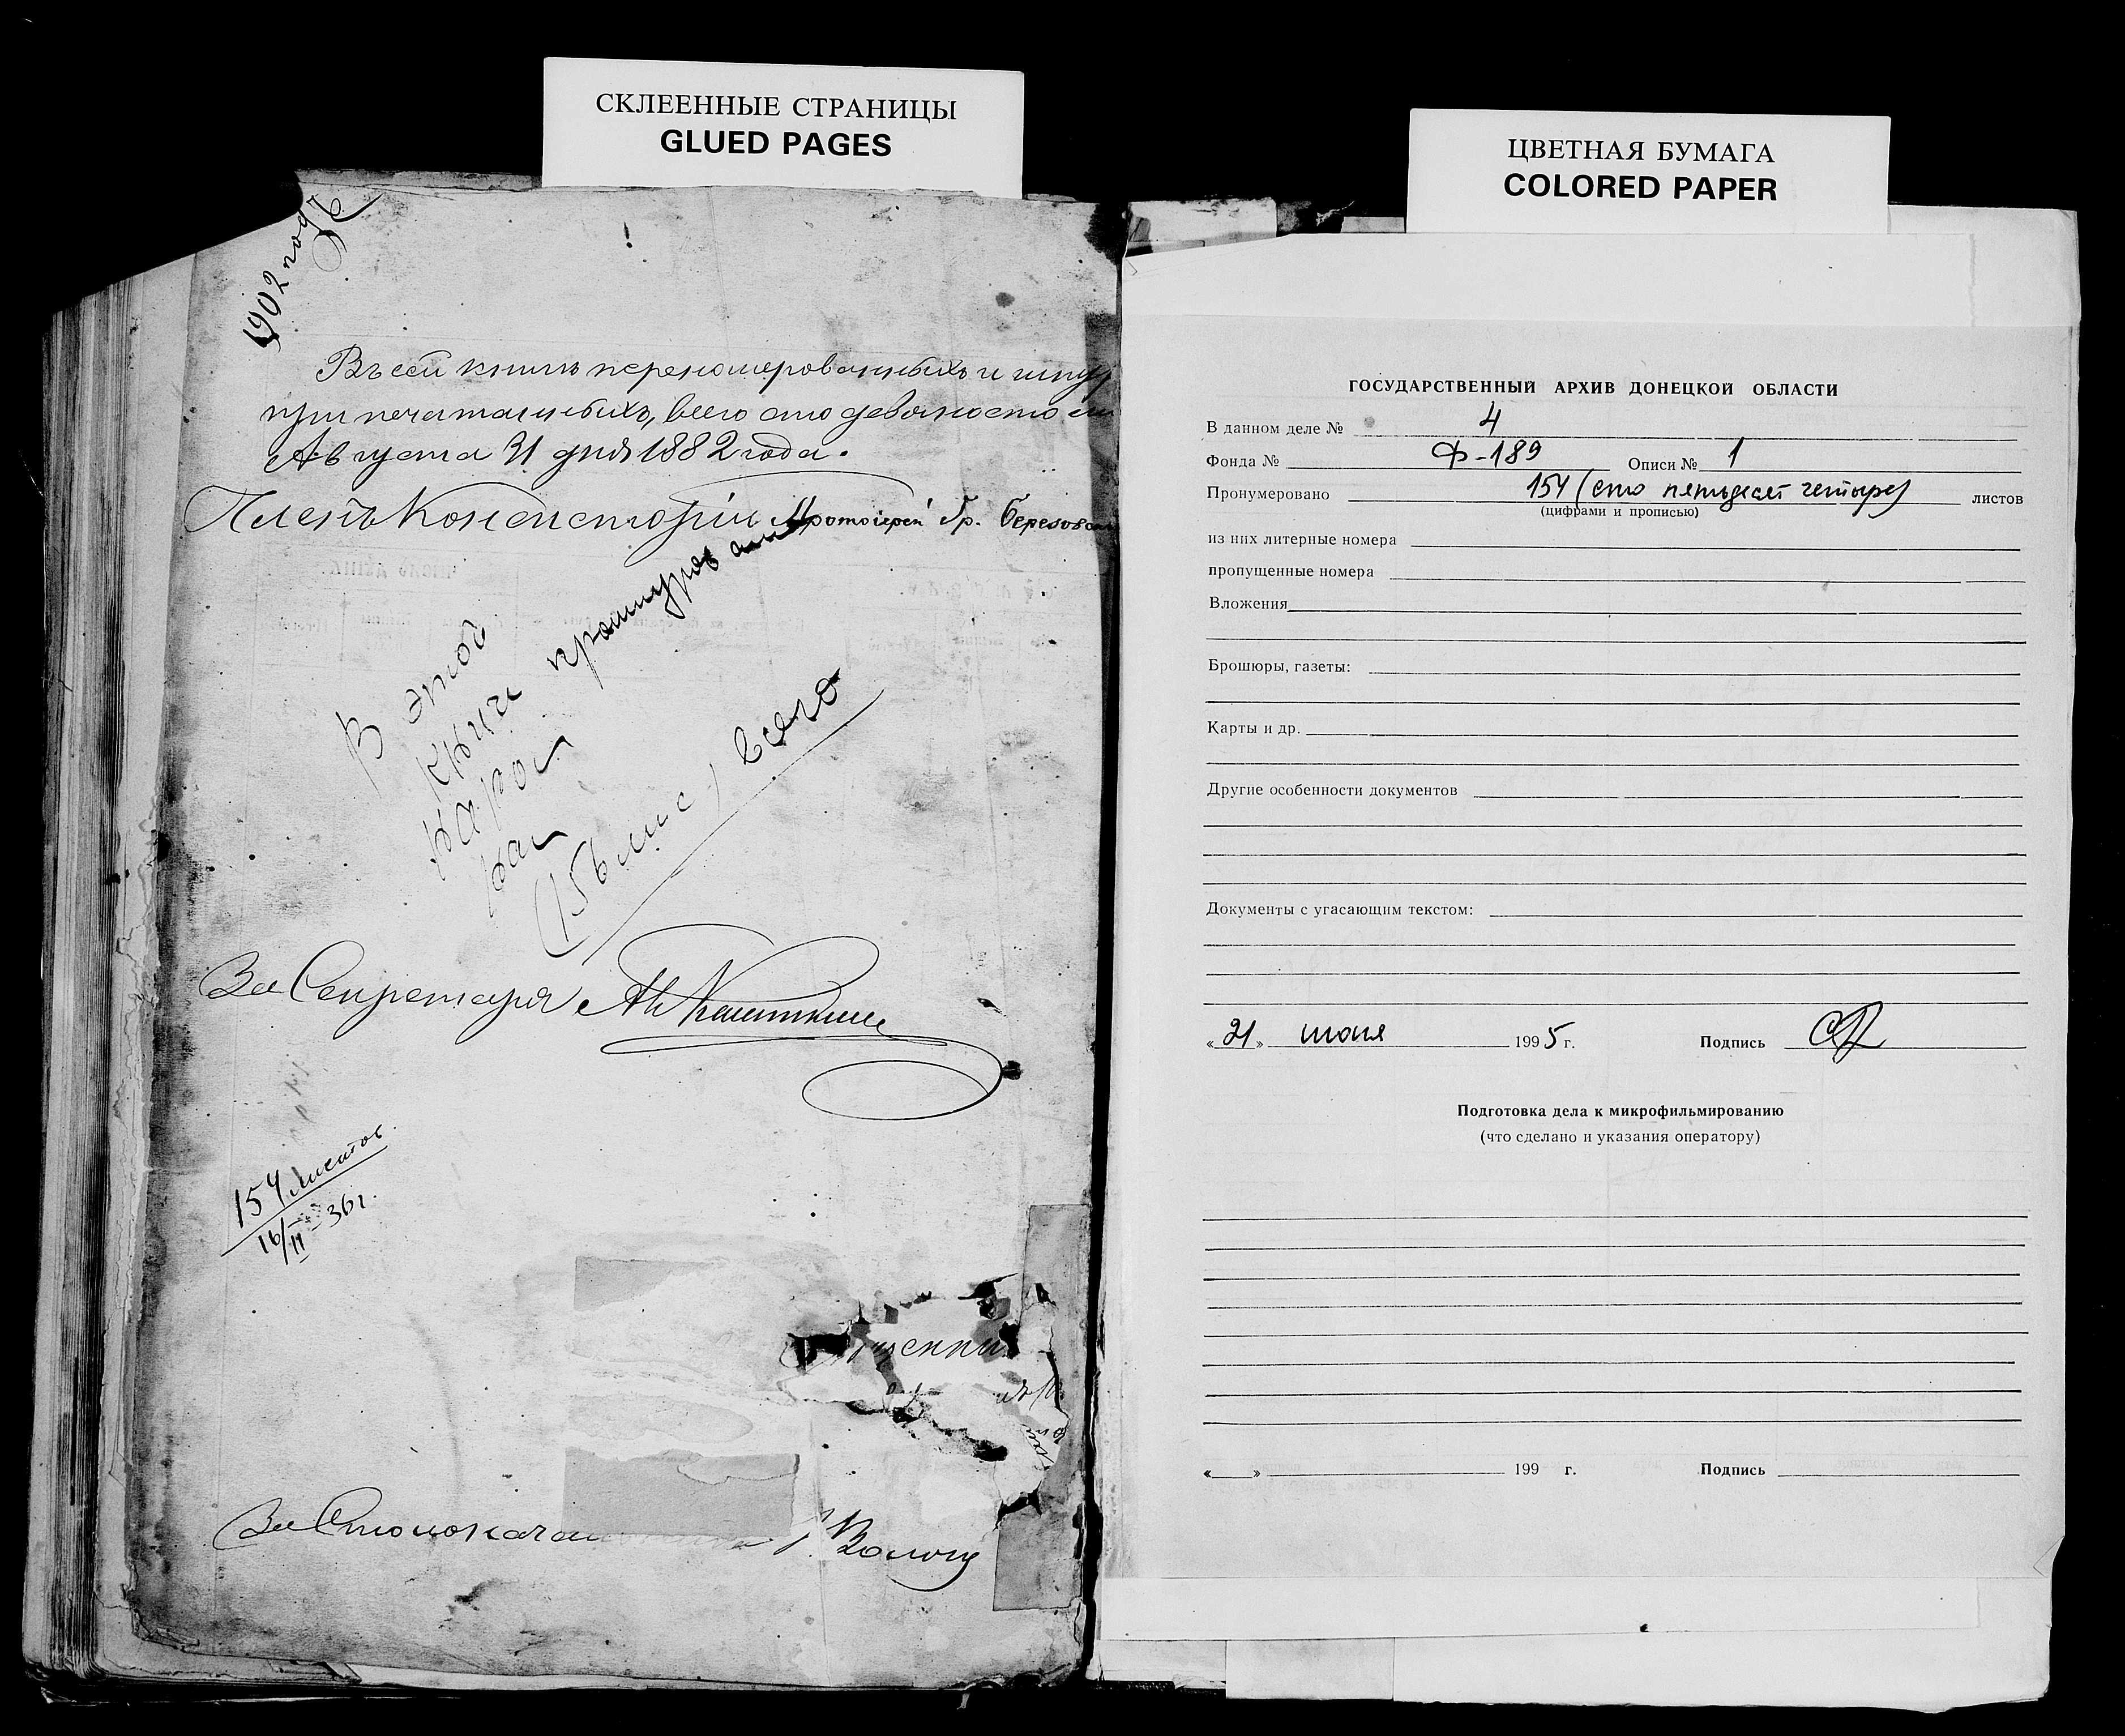 СКЛЕЕННЫЕ СТРАНИЦЫ
GLUED PAGES
1902 году
Въ сей книгѣ перенумерованныхъ и шну
припечатанныхъ, всего сто девяносто
Августа 31 дня 1882 года.
Членъ Консисторіи Протоіерей Гр. Березовск
В этой
книги прошуров
154 лис, всего
За Секретаря
154 листов.
16/II-36 г.
За Столоначал
ЦВЕТНАЯ БУМАГА
COLORED PAPER
ГОСУДАРСТВЕННЫЙ АРХИВ ДОНЕЦКОЙ ОБЛАСТИ
В данном деле № 4
Фонда № Ф-189 Описи № 1
Пронумеровано 154 (сто пятьдесят четыре) листов
(цифрами и прописью)
из них литерные номера
пропущенные номера
Вложения
Брошюры, газеты:
Карты и др.
Другие особенности документов
Документы с угасающим текстом:
«21» июня 1995 г. Подпись
Подготовка дела к микрофильмированию
(что сделано и указания оператору)
«    » 199 г. Подпись